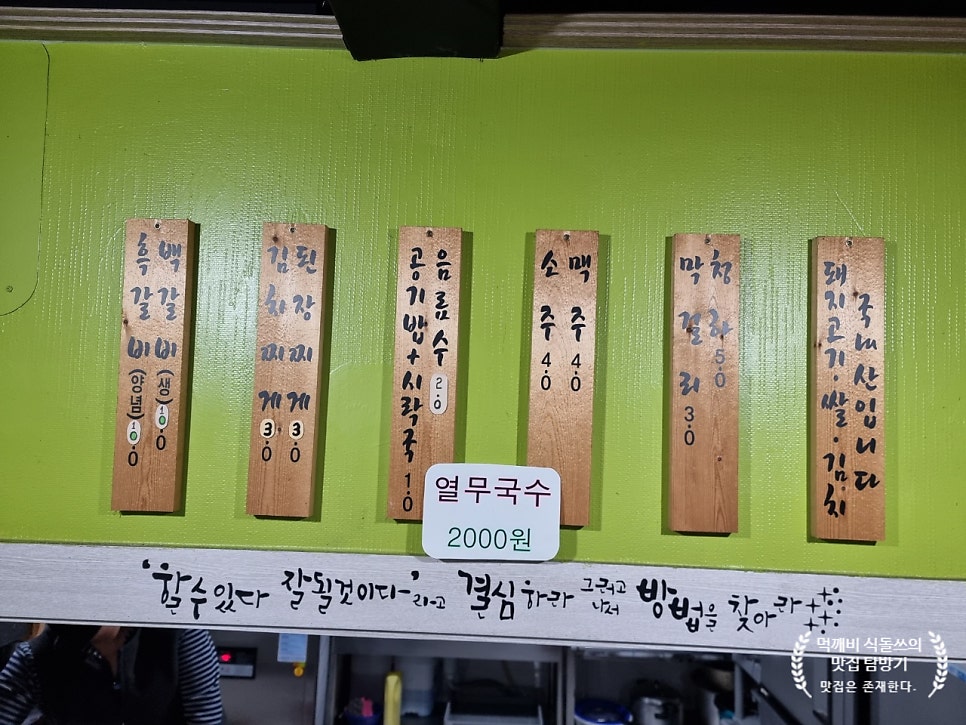 백갈비 (생) 10.0
흑갈비 (양념) 10.0
된장찌게 3.0
김치찌게 3.0
음료수 2.0
공기밥+시락국 1.0
맥주 4.0
소주 4.0
청하 5.0
막걸리 3.0
국내산입니다
돼지고기·쌀·김·치
열무국수
2000원
'할 수 있다 잘 될 것이다-' 라고 결심하라 그리고 나서 방법을 찾아라
먹깨비 식돌쓰의
맛집 탐방기
맛집은 존재한다.